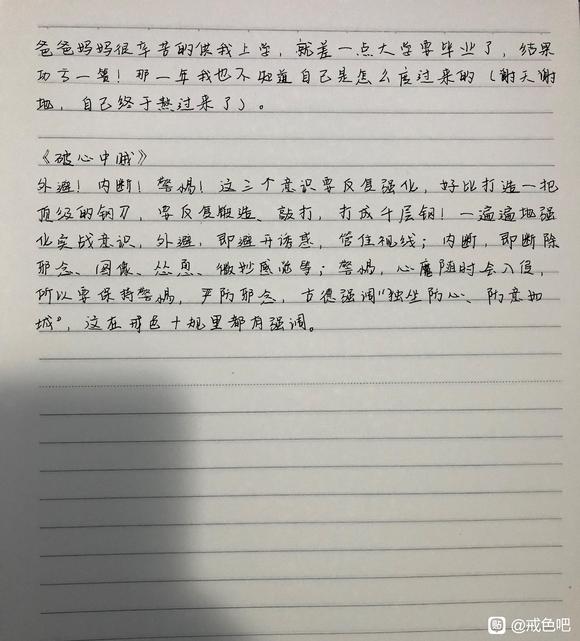 爸爸妈妈很辛苦的供我上学，就差一点大学要毕业了，结果
功亏一篑！那一年我也不知道自己是怎么度过来的（谢天谢
地，自己终于熬过来了）。
《破心中贼》
外避！内断！警惕！这三个意识要反复强化，好比打造一把
顶级的钢刀，要反复锻造、敲打，打成千层钢！一遍遍地强
化实战意识，外避，即避开诱惑，管住视线；内断，即断除
邪念、图像、怂恿、微妙感觉等；警惕，心魔随时会入侵，
所以要保持警惕，严防邪念，古德强调“独坐防心、防意如
城”，这在戒色十规里都有强调。
貼 @戒色吧